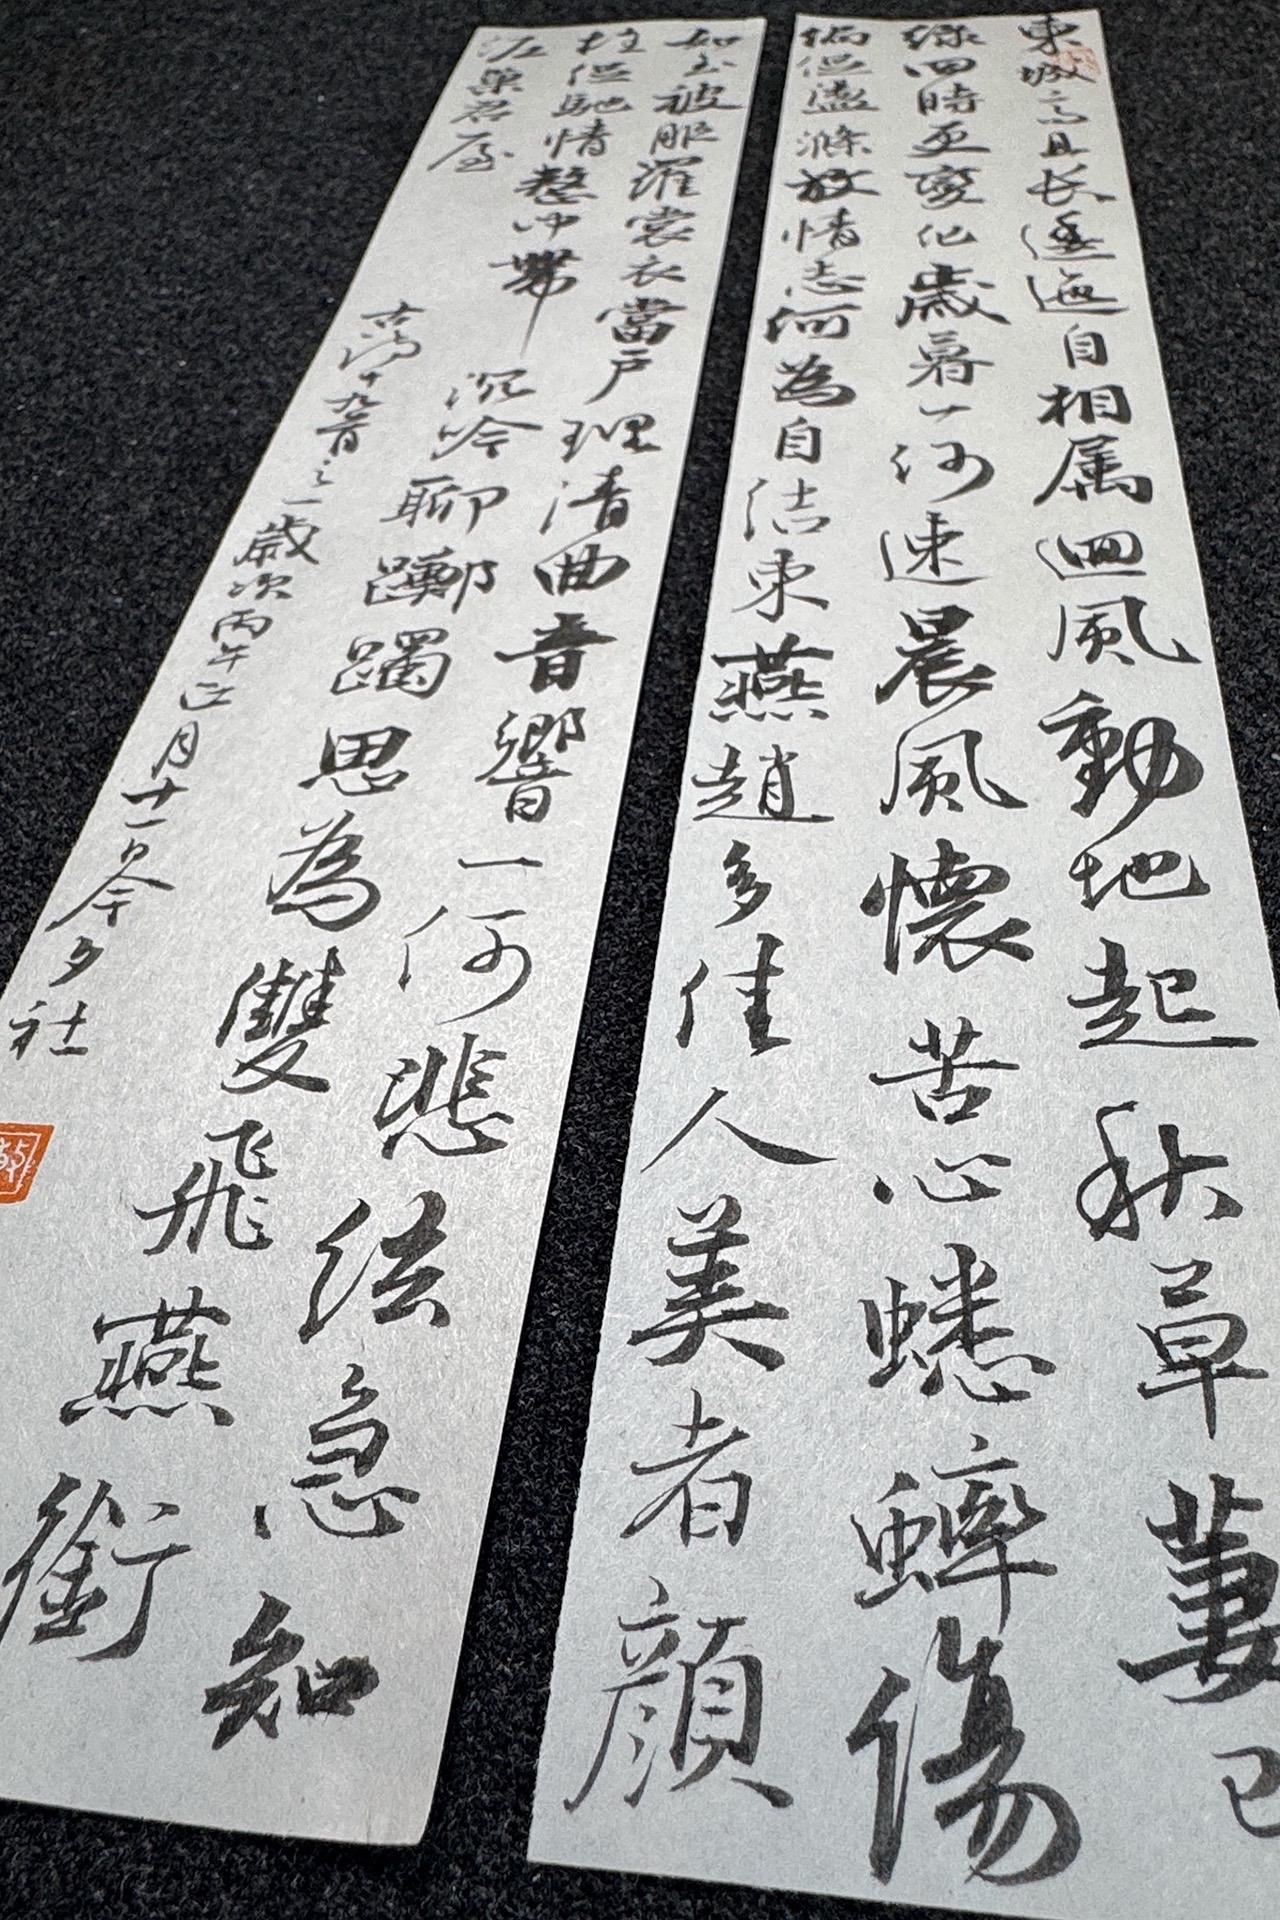 東城高且長逶迤自相属迴風動地起秋草萋已
綠四時更變化歲暮一何速晨風懷苦心蟋蟀傷
侷促盪滌放情志何為自結束燕趙多佳人美者顔
如玉被服羅裳衣當戶理清曲音響一何悲弦急知
柱促馳情整巾帶沉吟聊躑躅思為雙飛燕銜
泥巢君屋
古詩十九首之一歲次丙午正月十一日今夕社